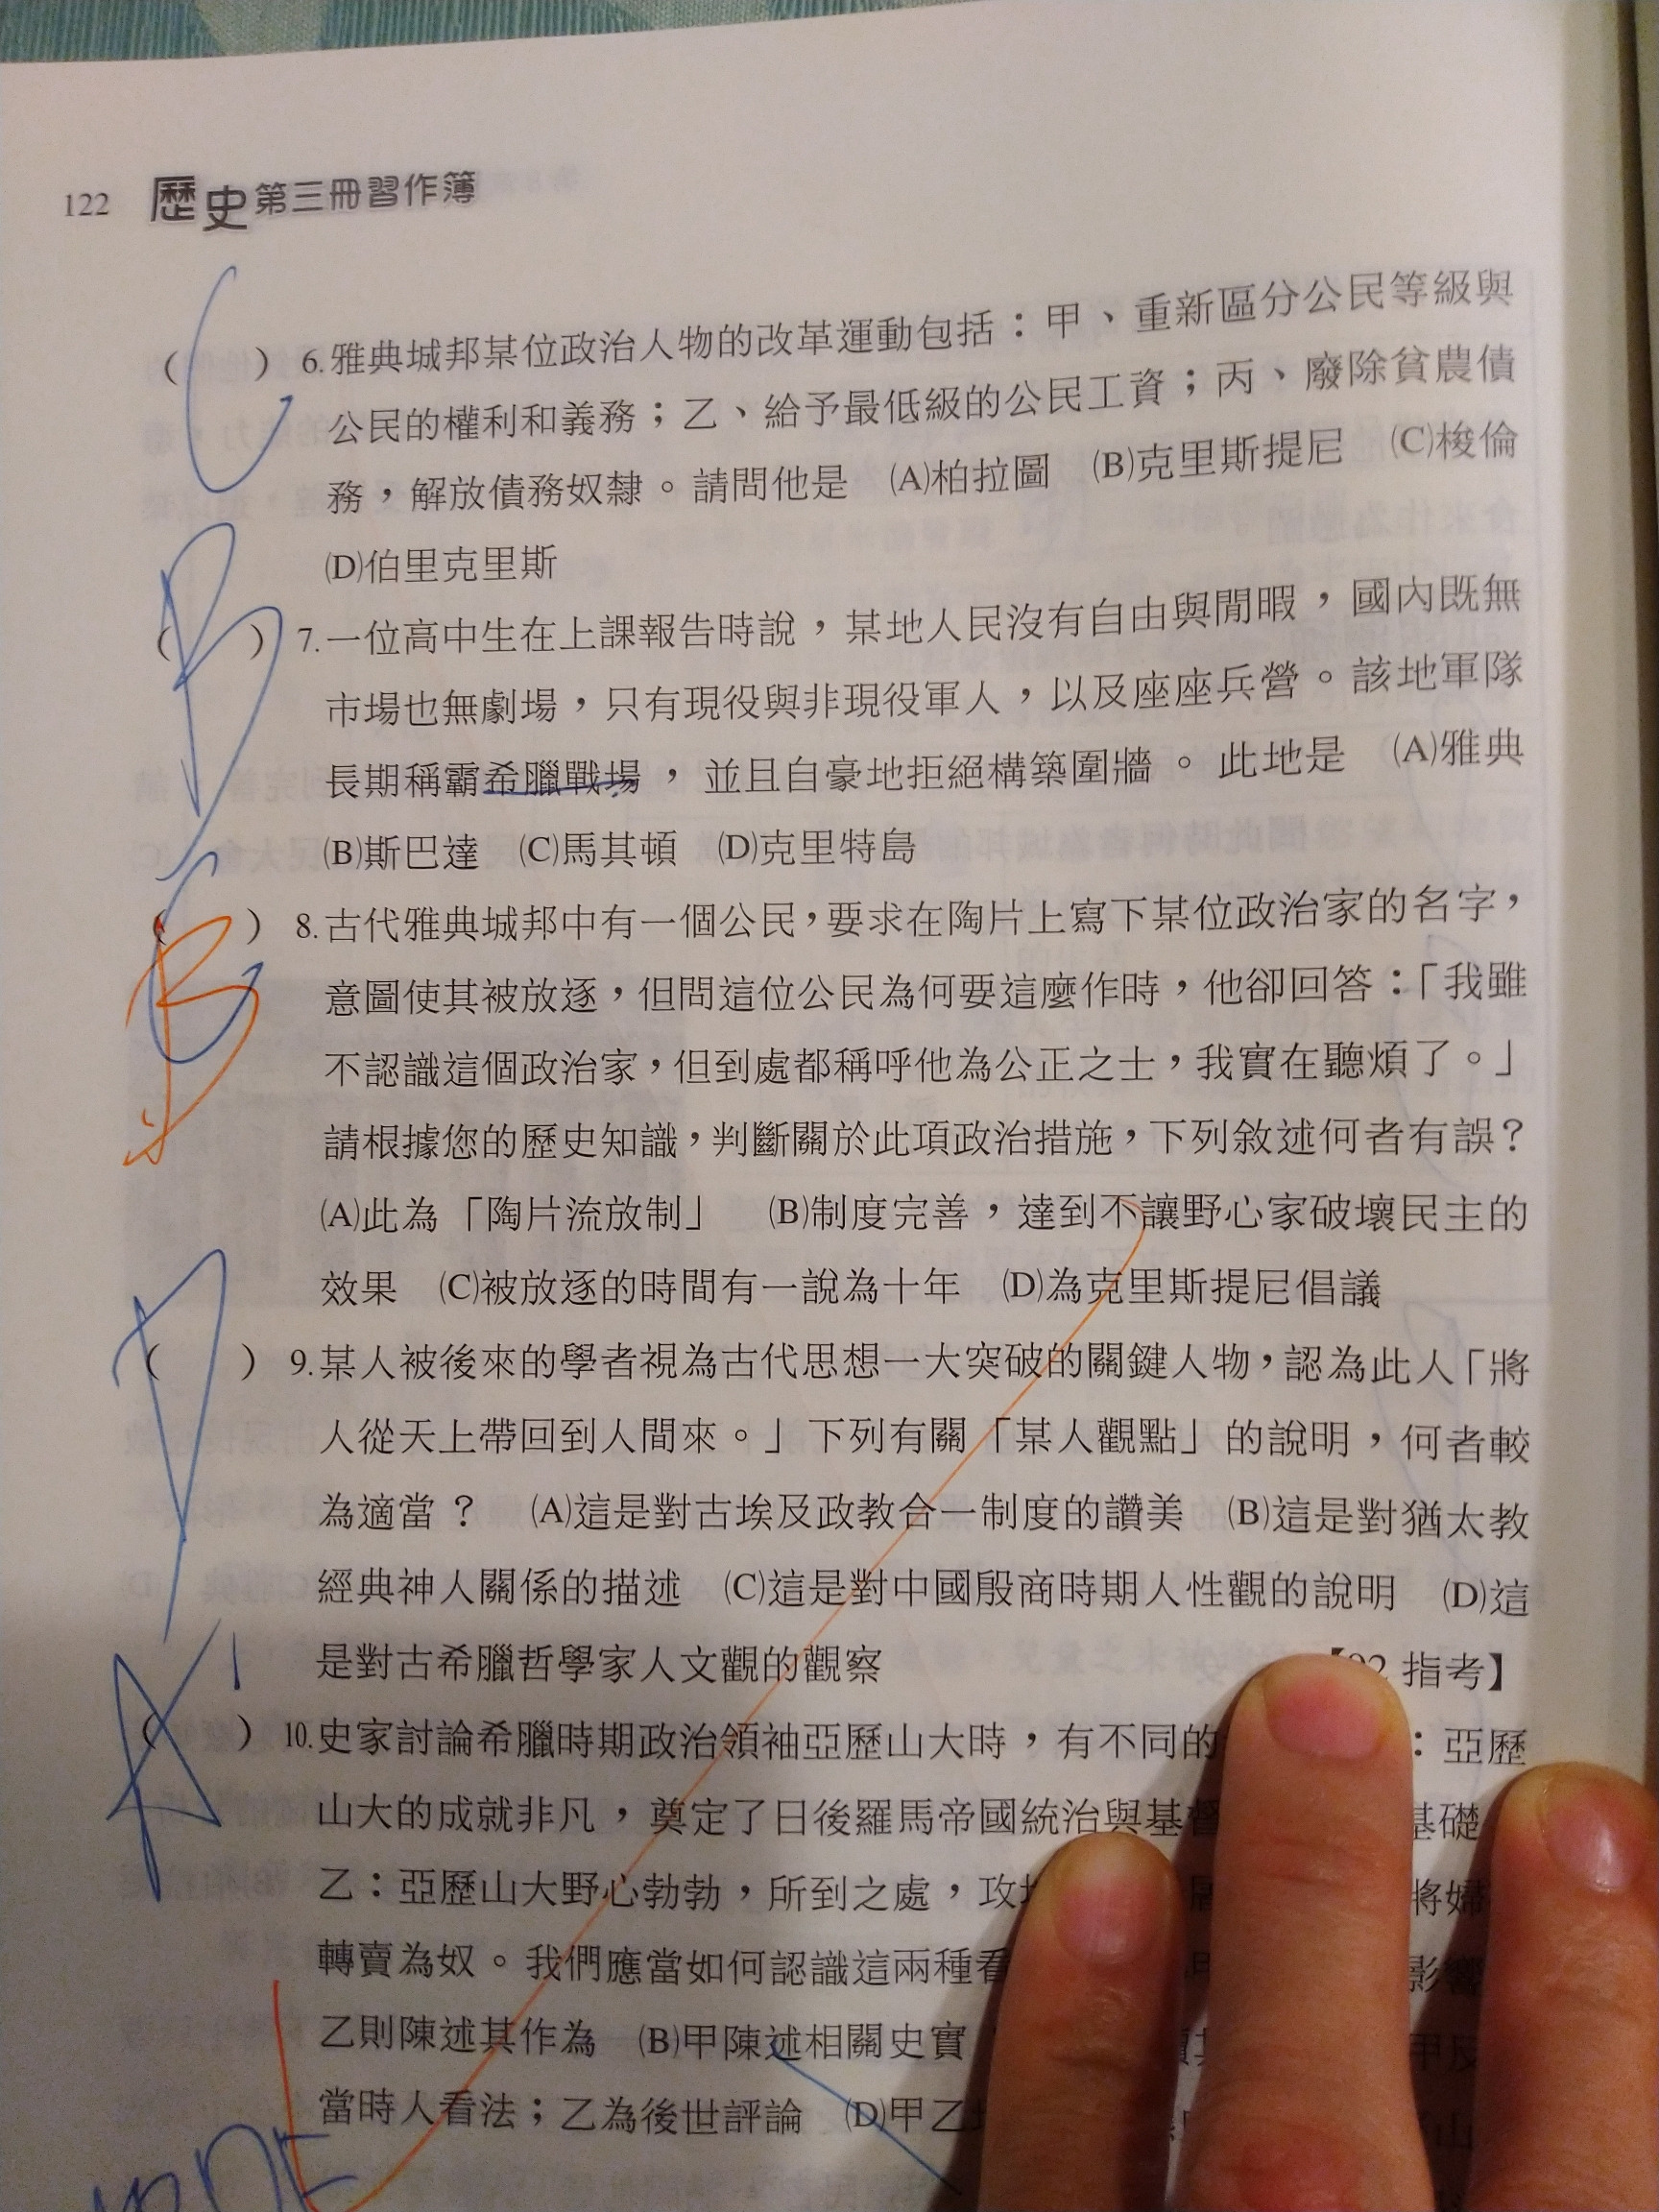 122 歷史第三冊習作簿
C
( ) 6.雅典城邦某位政治人物的改革運動包括：甲、重新區分公民等級與
公民的權利和義務；乙、給予最低級的公民工資；丙、廢除貧農債
務，解放債務奴隸。請問他是 (A)柏拉圖 (B)克里斯提尼 (C)梭倫
(D)伯里克里斯
B
( ) 7.一位高中生在上課報告時說，某地人民沒有自由與閒暇，國內既無
市場也無劇場，只有現役與非現役軍人，以及座座兵營。該地軍隊
長期稱霸希臘戰場，並且自豪地拒絕構築圍牆。此地是 (A)雅典
(B)斯巴達 (C)馬其頓 (D)克里特島
C
B
( ) 8.古代雅典城邦中有一個公民，要求在陶片上寫下某位政治家的名字，
意圖使其被放逐，但問這位公民為何要這麼作時，他卻回答：「我雖
不認識這個政治家，但到處都稱呼他為公正之士，我實在聽煩了。」
請根據您的歷史知識，判斷關於此項政治措施，下列敘述何者有誤？
(A)此為「陶片流放制」 (B)制度完善，達到不讓野心家破壞民主的
效果 (C)被放逐的時間有一說為十年 (D)為克里斯提尼倡議
D
( ) 9.某人被後來的學者視為古代思想一大突破的關鍵人物，認為此人「將
人從天上帶回到人間來。」下列有關「某人觀點」的說明，何者較
為適當？ (A)這是對古埃及政教合一制度的讚美 (B)這是對猶太教
經典神人關係的描述 (C)這是對中國殷商時期人性觀的說明 (D)這
是對古希臘哲學家人文觀的觀察 指考】
A
( ) 10.史家討論希臘時期政治領袖亞歷山大時，有不同的 ：亞歷
山大的成就非凡，奠定了日後羅馬帝國統治與基 基礎
乙：亞歷山大野心勃勃，所到之處， 將婦
轉賣為奴。我們應當如何認識這兩種看 影響
乙則陳述其作為 (B)甲陳述相關史實 甲反
當時人看法；乙為後世評論 (D)甲乙